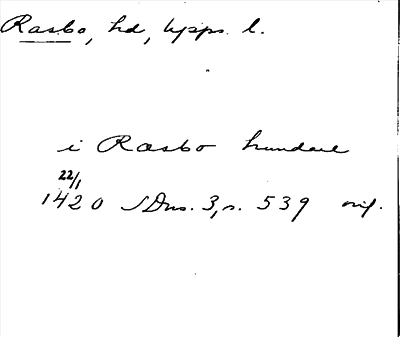 Rasbo, hd, Upps. l.
i Rasbo hundare
22/1
1420 SDns. 3, s. 539 orig.